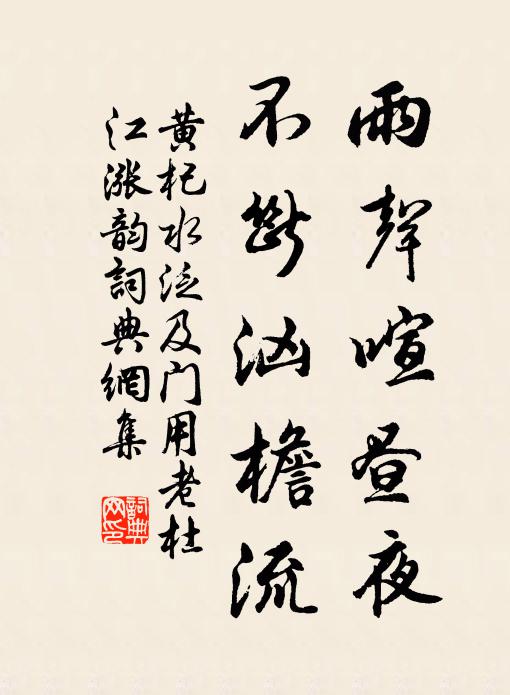 雨聲喧昼夜
不断汹檐流
黄杞水泛及门用老杜
江涨韵詞典網集
詞典
网印